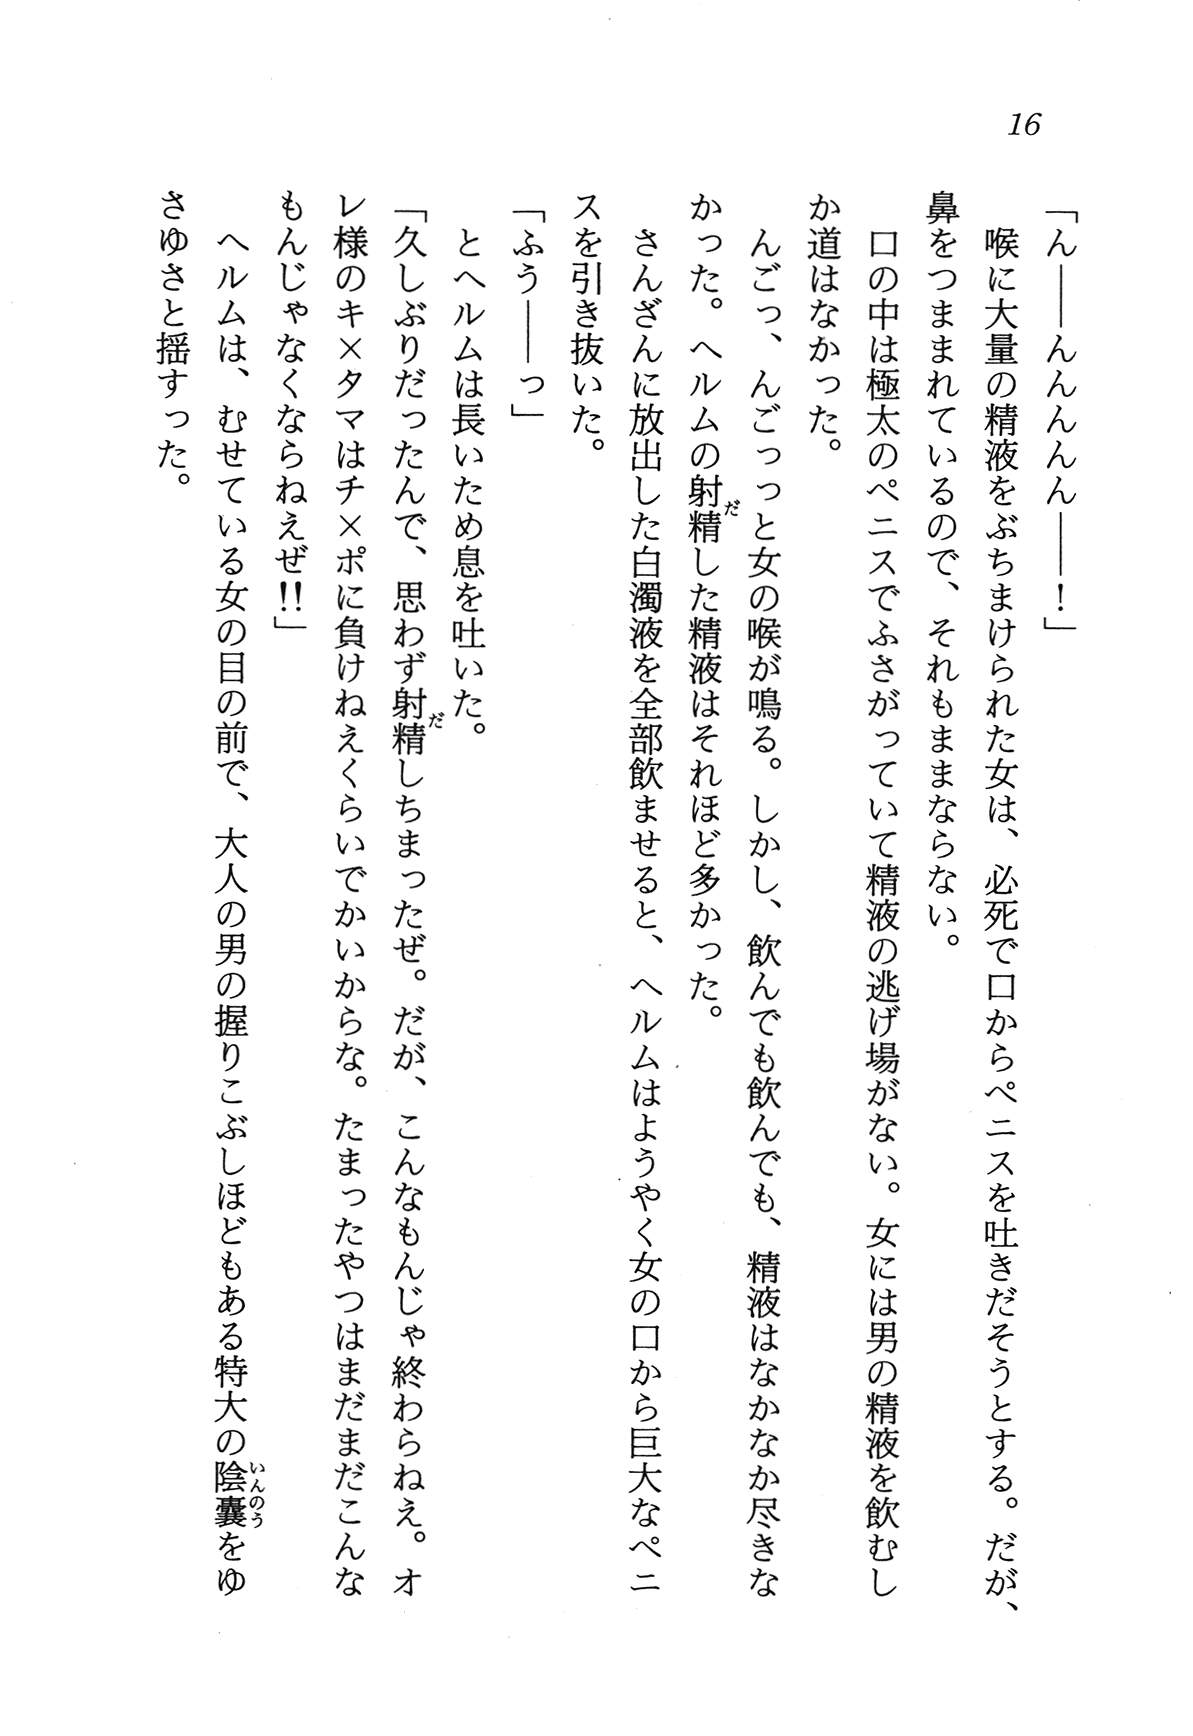 16
「ん――んんんんん――！」
喉に大量の精液をぶちまけられた女は、必死で口からペニスを吐きだそうとする。だが、
鼻をつままれているので、それもままならない。
口の中は極太のペニスでふさがっていて精液の逃げ場がない。女には男の精液を飲むし
か道はなかった。
んごっ、んごっっと女の喉が鳴る。しかし、飲んでも飲んでも、精液はなかなか尽きな
かった。ヘルムの射精だした精液はそれほど多かった。
さんざんに放出した白濁液を全部飲ませると、ヘルムはようやく女の口から巨大なペニ
スを引き抜いた。
「ふう――っ」
とヘルムは長いため息を吐いた。
「久しぶりだったんで、思わず射精だしちまったぜ。だが、こんなもんじゃ終わらねえ。オ
レ様のキ×タマはチ×ポに負けねえくらいでかいからな。たまったやつはまだまだこんな
もんじゃなくならねえぜ!!」
ヘルムは、むせている女の目の前で、大人の男の握りこぶしほどもある特大の陰嚢いんのうをゆ
さゆさと揺すった。